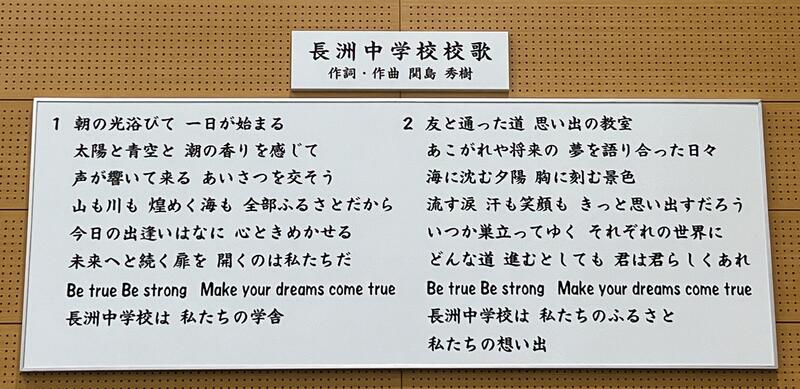 長洲中学校校歌
作詞・作曲 関島 秀樹
1 朝の光浴びて 一日が始まる
太陽と青空と 潮の香りを感じて
声が響いて来る あいさつを交そう
山も川も 煌めく海も 全部ふるさとだから
今日の出逢いはなに 心ときめかせる
未来へと続く扉を 開くのは私たちだ
Be true Be strong Make your dreams come true
長洲中学校は 私たちの学舎
2 友と通った道 思い出の教室
あこがれや将来の 夢を語り合った日々
海に沈む夕陽 胸に刻む景色
流す涙 汗も笑顔も きっと思い出すだろう
いつか巣立ってゆく それぞれの世界に
どんな道 進むとしても 君は君らしくあれ
Be true Be strong Make your dreams come true
長洲中学校は 私たちのふるさと
私たちの想い出